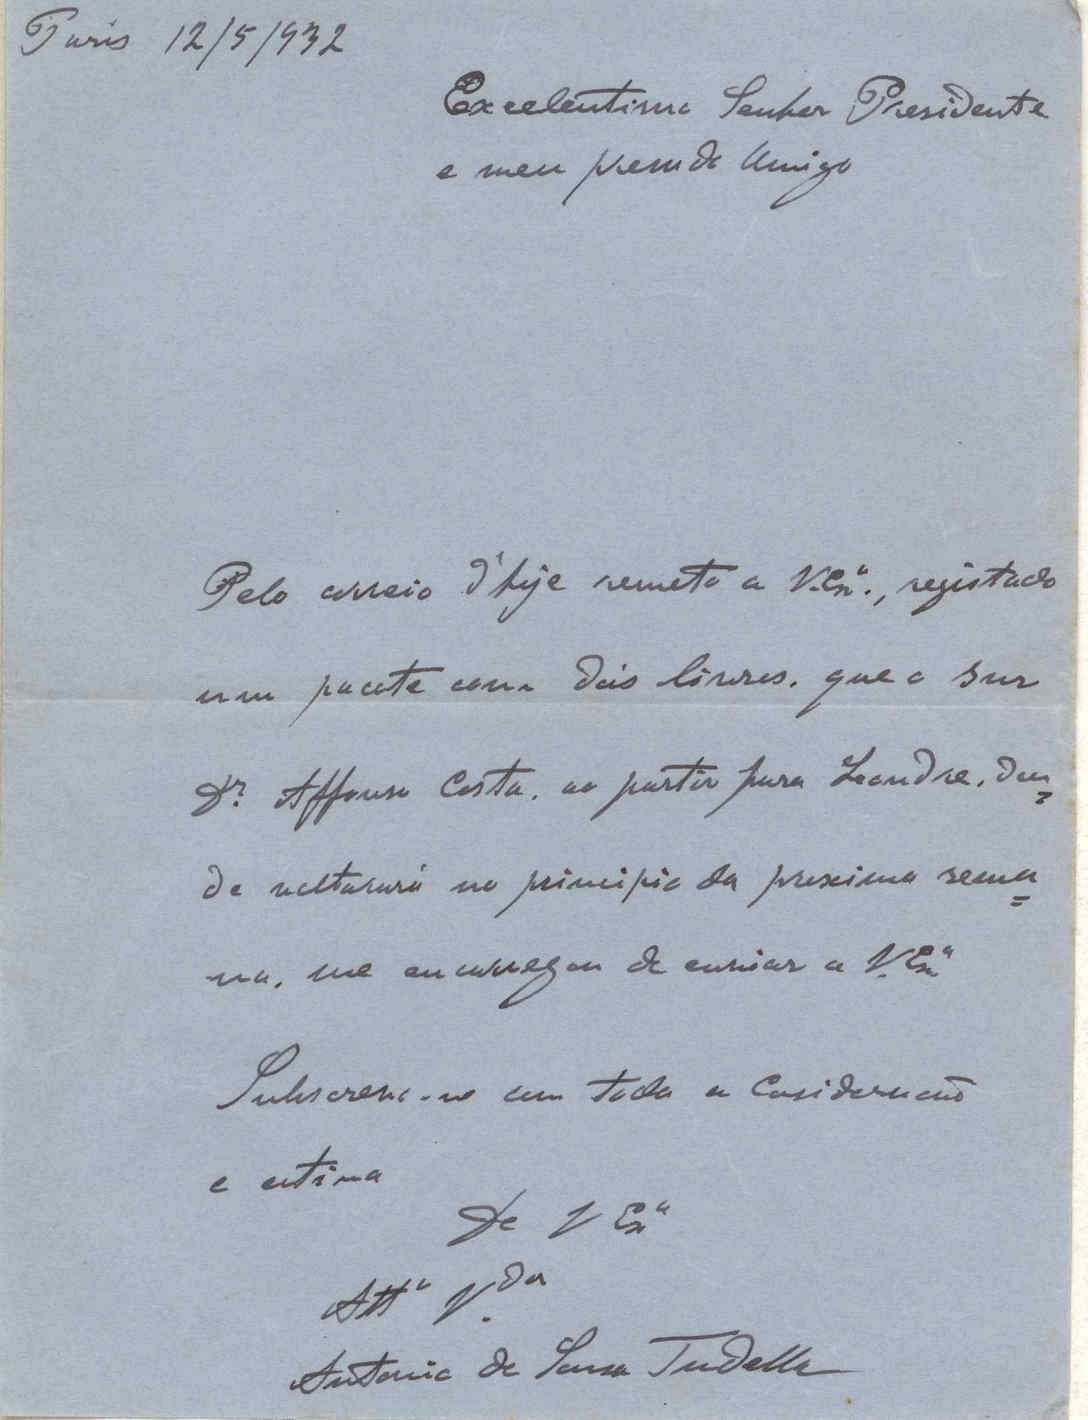 Paris 12/5/932
Excelentismo Senhor Presidente
e meu presado Amigo
Pelo correio d'hoje remeto a V.Exª., registado
um pacote com dois livros, que o Snr
Dr. Affonso Costa, ao partir para Londres, don-
de voltará no principio da proxima sema=
na, me encarregou de enviar a V.Exª
Subscrevo-me com toda a Consideração
e estima
De V Exª
Attº V.dor
Antonio de Sousa Tudella